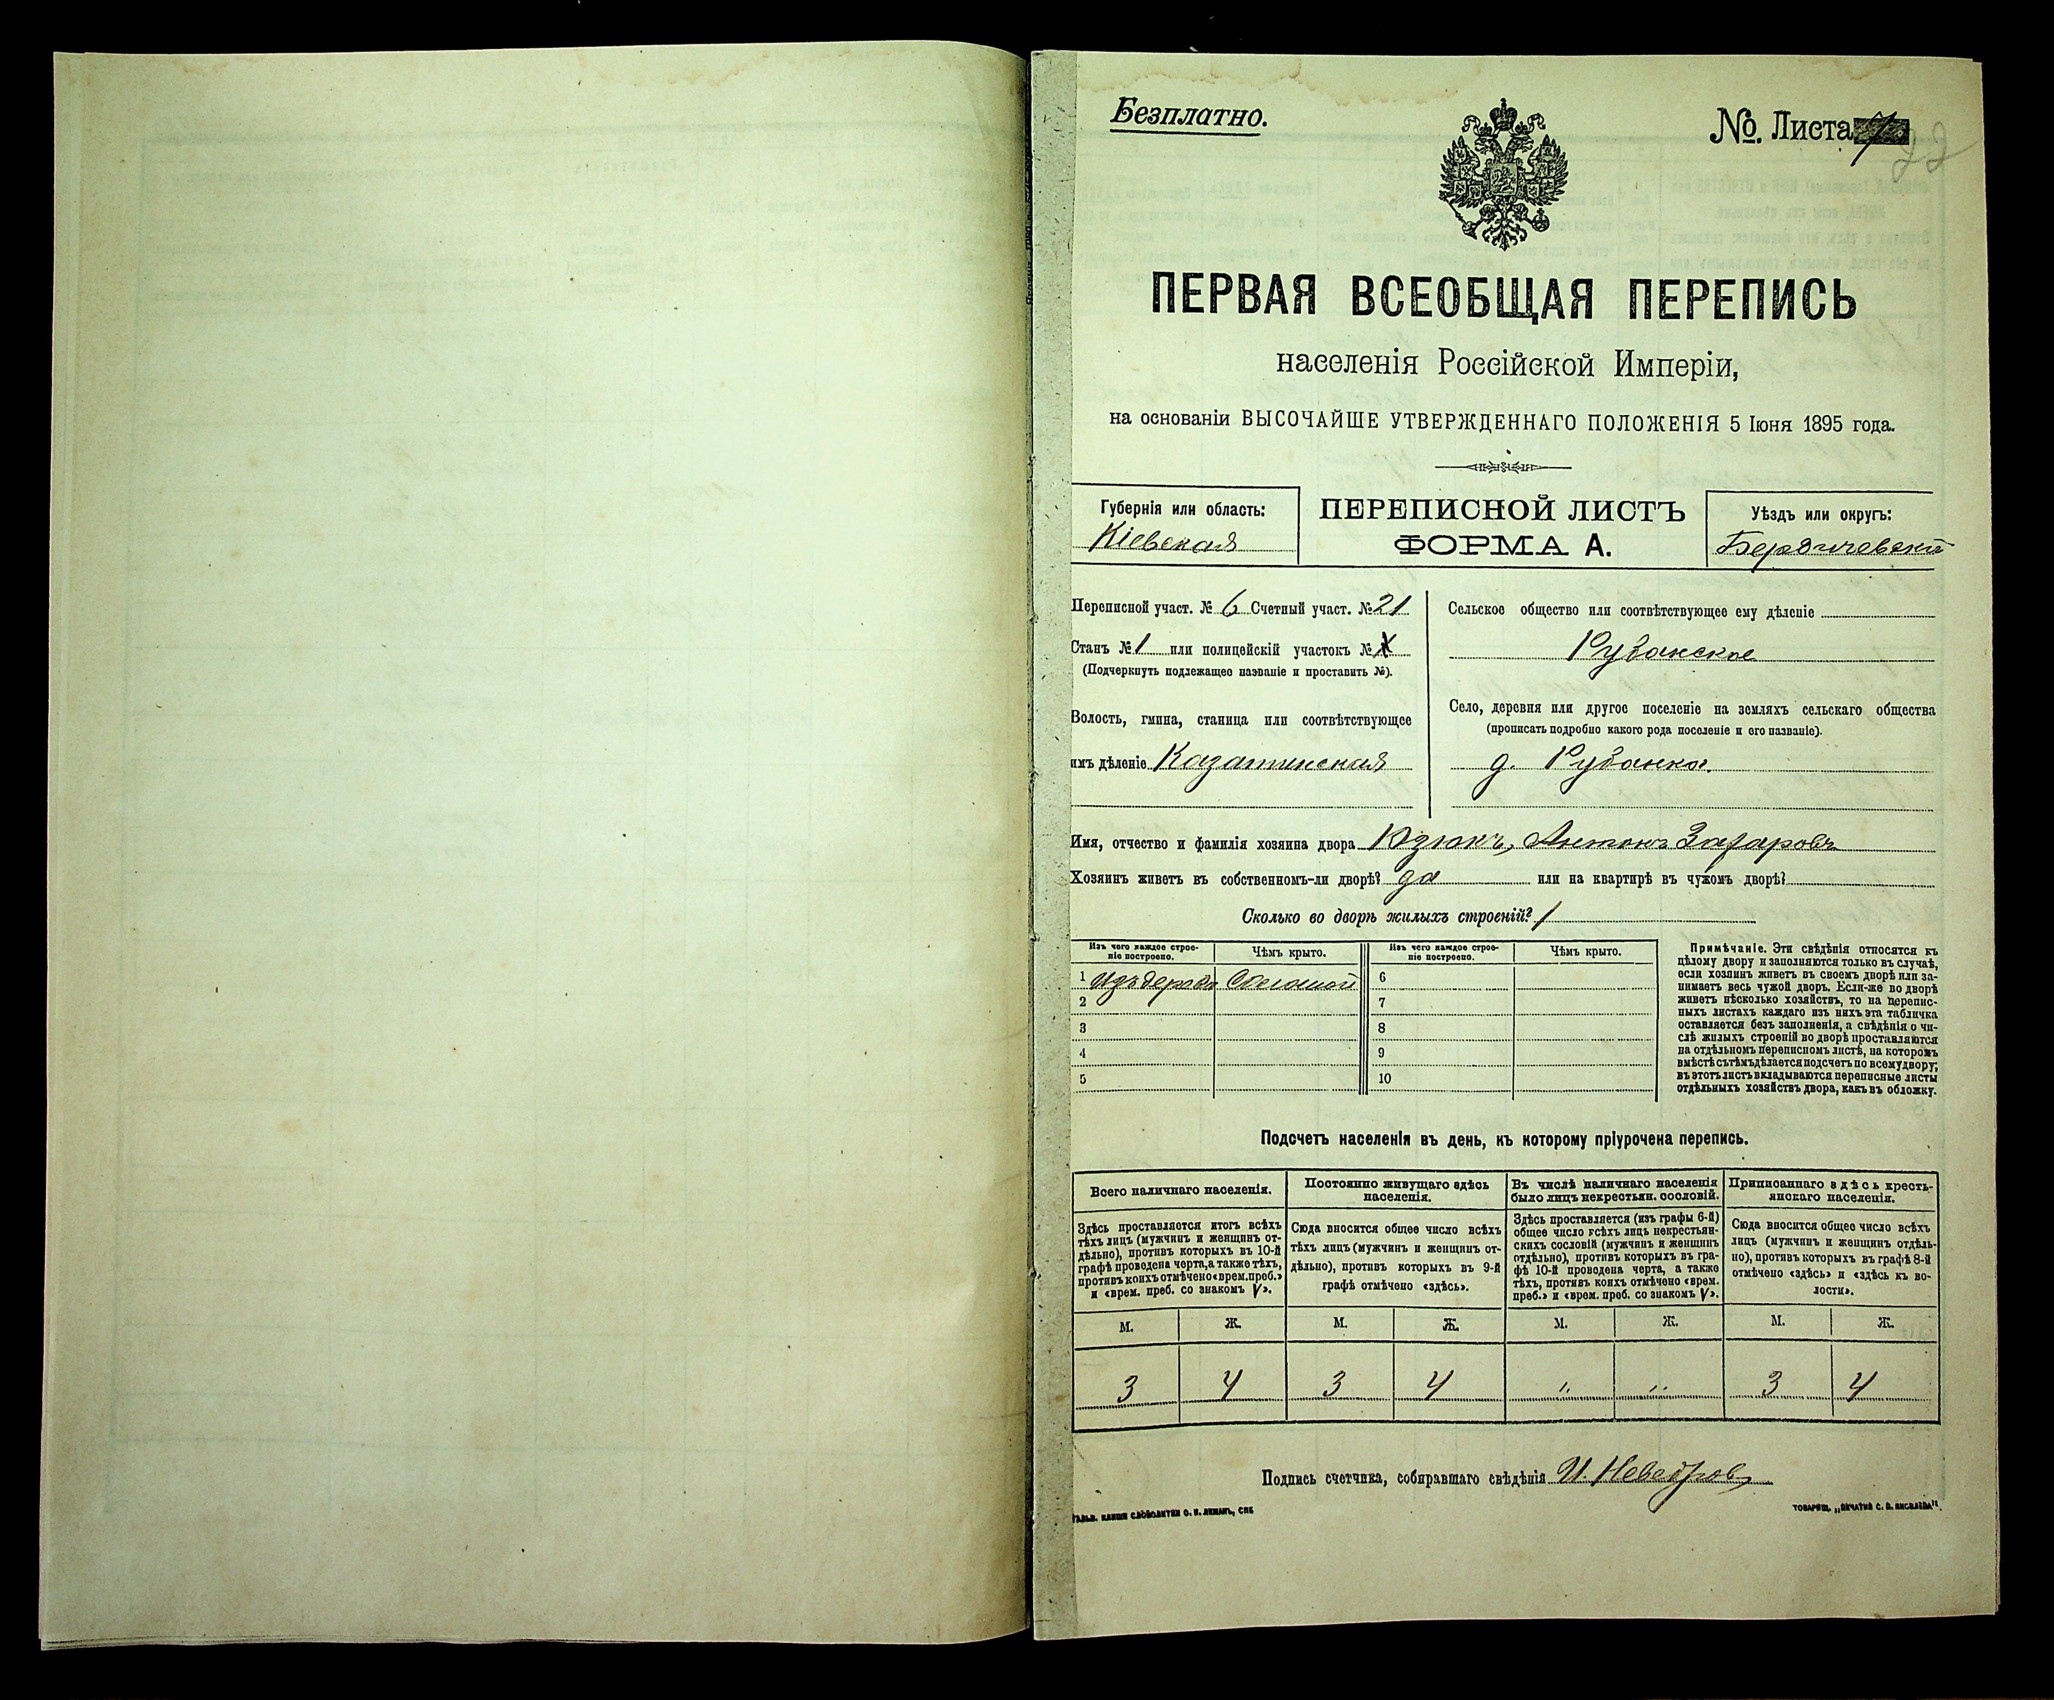 Безплатно.
№. Листа 7
22
ПЕРВАЯ ВСЕОБЩАЯ ПЕРЕПИСЬ
населенія Россійской Имперіи,
на основаніи ВЫСОЧАЙШЕ УТВЕРЖДЕННАГО ПОЛОЖЕНІЯ 5 Іюня 1895 года.
Губернія или область:
Кіевская
ПЕРЕПИСНОЙ ЛИСТЪ
ФОРМА А.
Уѣздъ или округъ:
Бердичевскій
Переписной участ. № 6 Счетный участ. № 21
Станъ № 1 или полицейскій участокъ №
(Подчеркнуть подлежащее названіе и проставить №).
Волость, гмина, станица или соотвѣтствующее
имъ дѣленіе Казатинская
Сельское общество или соотвѣтствующее ему дѣленіе
Рубанское
Село, деревня или другое поселеніе на земляхъ сельскаго общества
(прописать подробно какого рода поселеніе и его названіе).
д. Рубанка.
Имя, отчество и фамилія хозяина двора Кузюкъ, Антонъ Захаровъ
Хозяинъ живетъ въ собственномъ-ли дворѣ? да или на квартирѣ въ чужомъ дворѣ?
Сколько во дворѣ жилыхъ строеній? 1
Изъ чего каждое строе-
ніе построено.
Чѣмъ крыто.
Изъ чего каждое строе-
ніе построено.
Чѣмъ крыто.
1 Изъ дерева Соломой 6
2 7
3 8
4 9
5 10
Примѣчаніе. Эти свѣдѣнія относятся къ
цѣлому двору и заполняются только въ случаѣ,
если хозяинъ живетъ въ своемъ дворѣ или за-
нимаетъ весь чужой дворъ. Если-же во дворѣ
живетъ нѣсколько хозяйствъ, то на перепис-
ныхъ листахъ каждаго изъ нихъ эта табличка
оставляется безъ заполненія, а свѣдѣнія о чи-
слѣ жилыхъ строеній во дворѣ проставляются
на отдѣльномъ переписномъ листѣ, на которомъ
вмѣстѣ съ тѣмъ дѣлается подсчетъ по всему двору;
въ этотъ листъ вкладываются переписные листы
отдѣльныхъ хозяйствъ двора, какъ въ обложку.
Подсчетъ населенія въ день, къ которому пріурочена перепись.
Всего наличнаго населенія.
Здѣсь проставляется итогъ всѣхъ
тѣхъ лицъ (мужчинъ и женщинъ от-
дѣльно), противъ которыхъ въ 10-й
графѣ проведена черта, а также тѣхъ,
противъ коихъ отмѣчено «врем. преб.»
и «врем. преб. со знакомъ V».
Постоянно живущаго здѣсь
населенія.
Сюда вносится общее число всѣхъ
тѣхъ лицъ (мужчинъ и женщинъ от-
дѣльно), противъ которыхъ въ 9-й
графѣ отмѣчено «здѣсь».
Въ числѣ наличнаго населенія
было лицъ некрестьян. сословій.
Здѣсь проставляется (изъ графы 6-й)
общее число всѣхъ лицъ некрестьян-
скихъ сословій (мужчинъ и женщинъ
отдѣльно), противъ которыхъ въ гра-
фѣ 10-й проведена черта, а также
тѣхъ, противъ коихъ отмѣчено «врем.
преб.» и «врем. преб. со знакомъ V».
Приписаннаго здѣсь кресть-
янскаго населенія.
Сюда вносится общее число всѣхъ
лицъ (мужчинъ и женщинъ отдѣль-
но), противъ которыхъ въ графѣ 8-й
отмѣчено «здѣсь» и «здѣсь къ во-
лости».
М. Ж. М. Ж. М. Ж. М. Ж.
3 4 3 4 " " 3 4
Подпись счетчика, собиравшаго свѣдѣнія И.